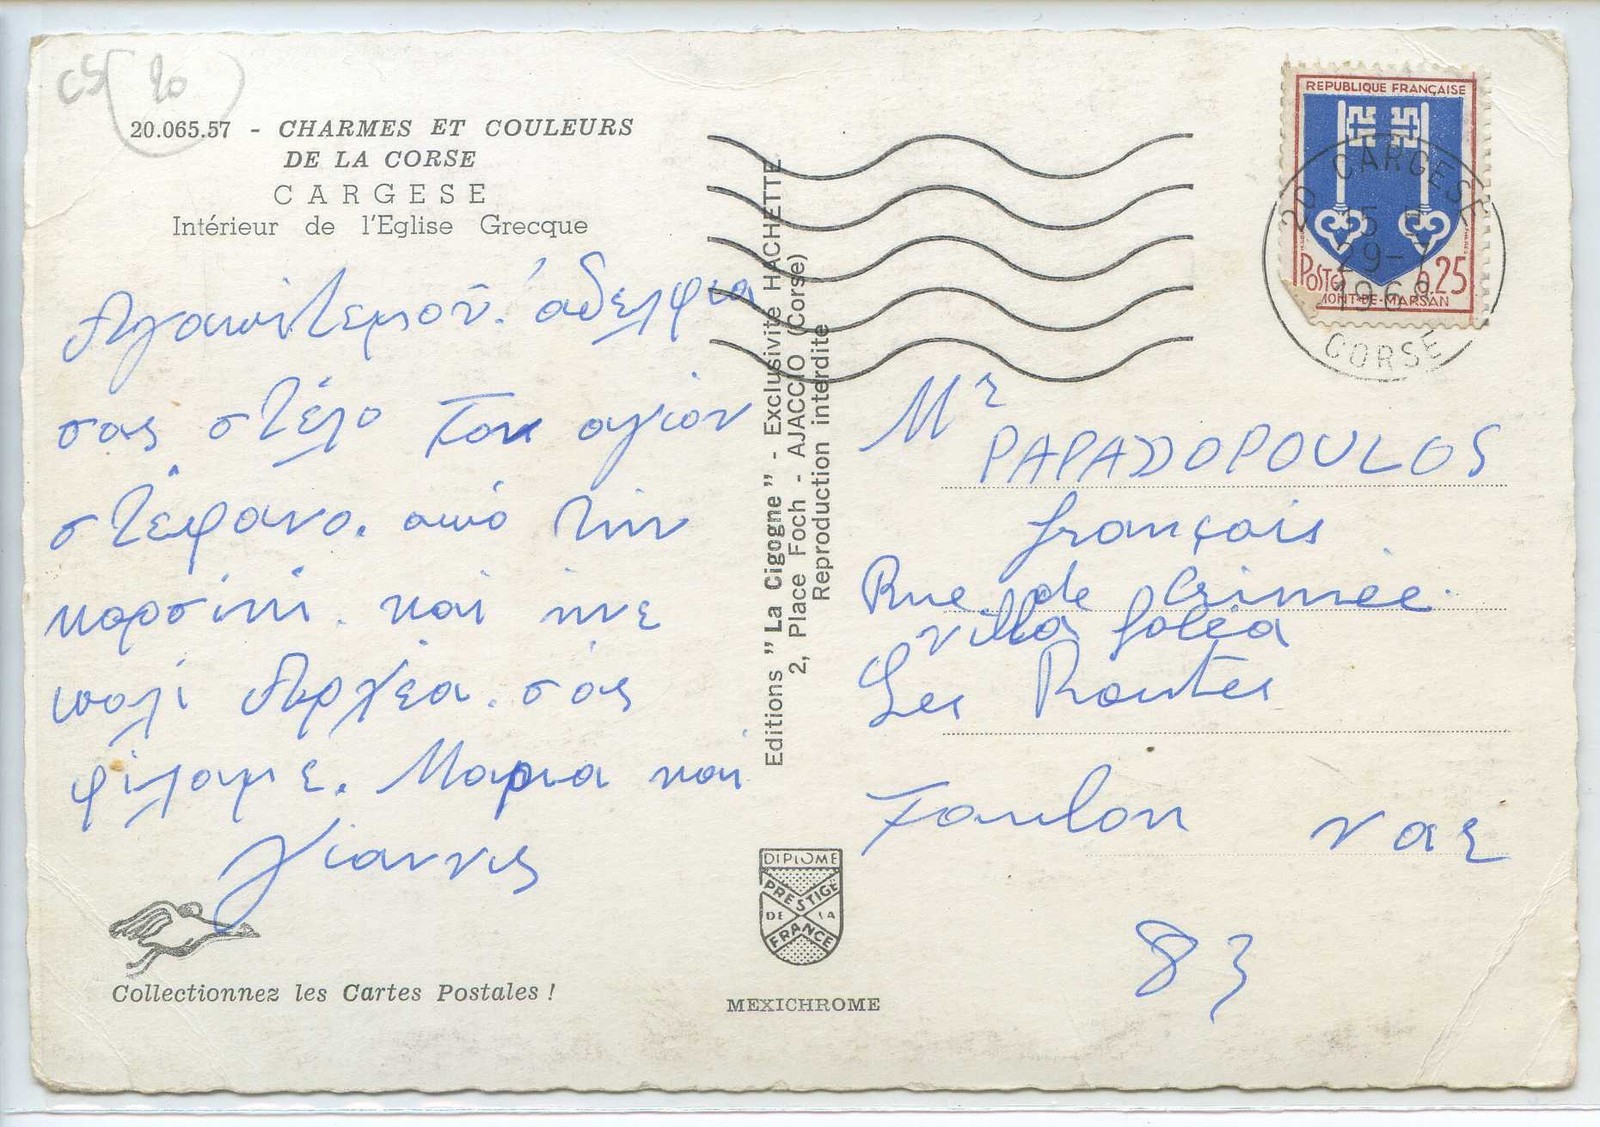 CS (20)
20.065.57 - CHARMES ET COULEURS
DE LA CORSE
CARGESE
Intérieur de l'Eglise Grecque
Αγαπιτεμου. αδελφια
σας στέλο τον αγιον
στέφανο. από την
κορσικι. και ινε
πολι Αρχέα. σας
φιλαμε. Μαρια και
Γιαννις
Collectionnez les Cartes Postales !
Editions " La Cigogne " - Exclusivité HACHETTE
2, Place Foch - AJACCIO (Corse)
Reproduction interdite
DIPLOME
PRESTIGE
DE LA
FRANCE
MEXICHROME
REPUBLIQUE FRANÇAISE
POSTE 0.25
MONT-DE-MARSAN
20 CARGESE
29-7
CORSE
Mr
PAPADOPOULOS
françois
Rue de Crimée.
villa
Les Routes
Toulon var
83